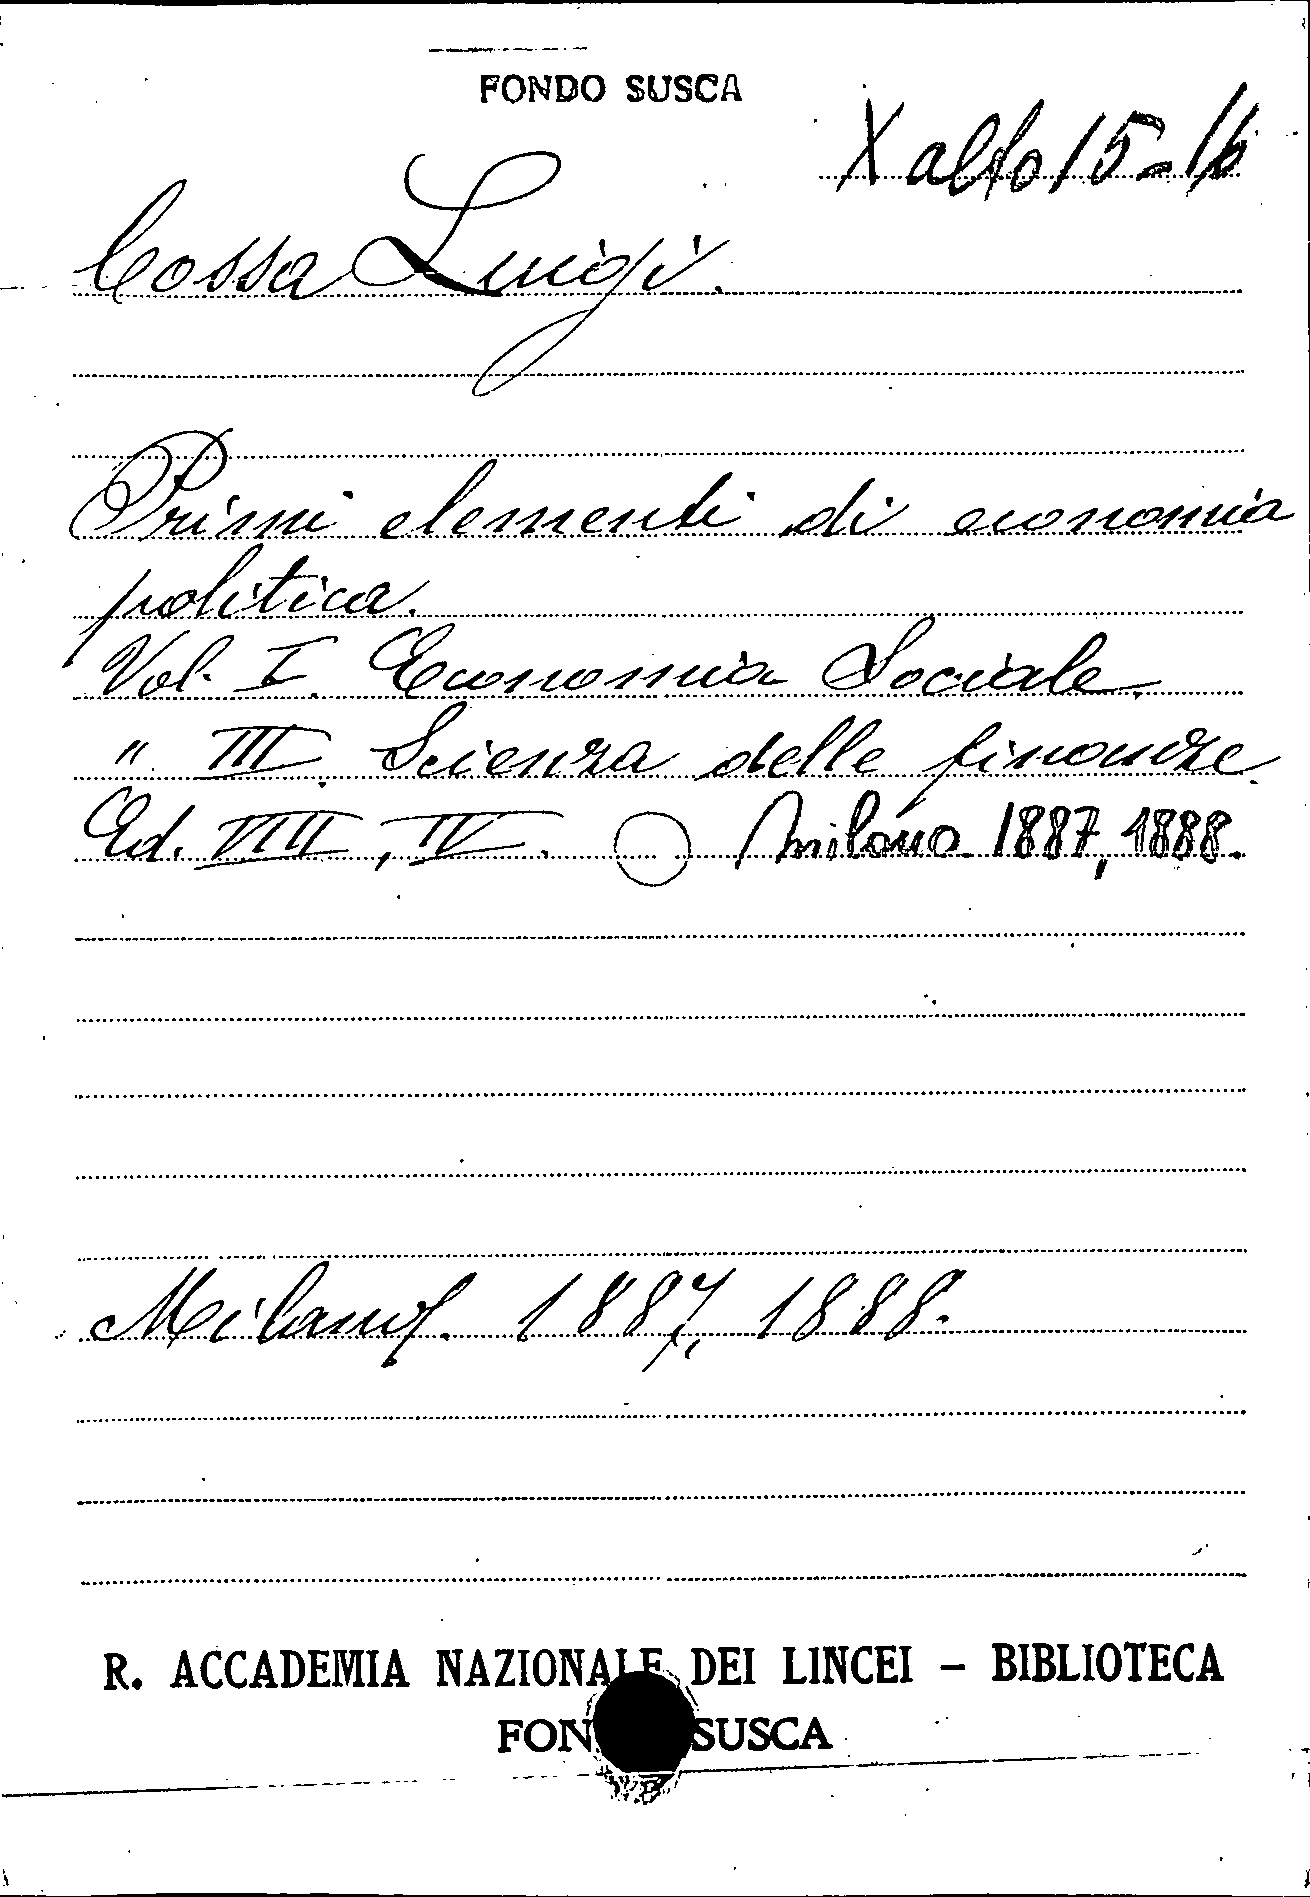 FONDO SUSCA
X alto 15-16
Cossa Luigi.
Primi elementi di economia
politica.
Vol. I. Economia Sociale.
" III. Scienza delle finanze.
Ed. VIII, IV. Milano 1887, 1888.
Milano. 1887, 1888.
R. ACCADEMIA NAZIONALE DEI LINCEI – BIBLIOTECA
FON SUSCA